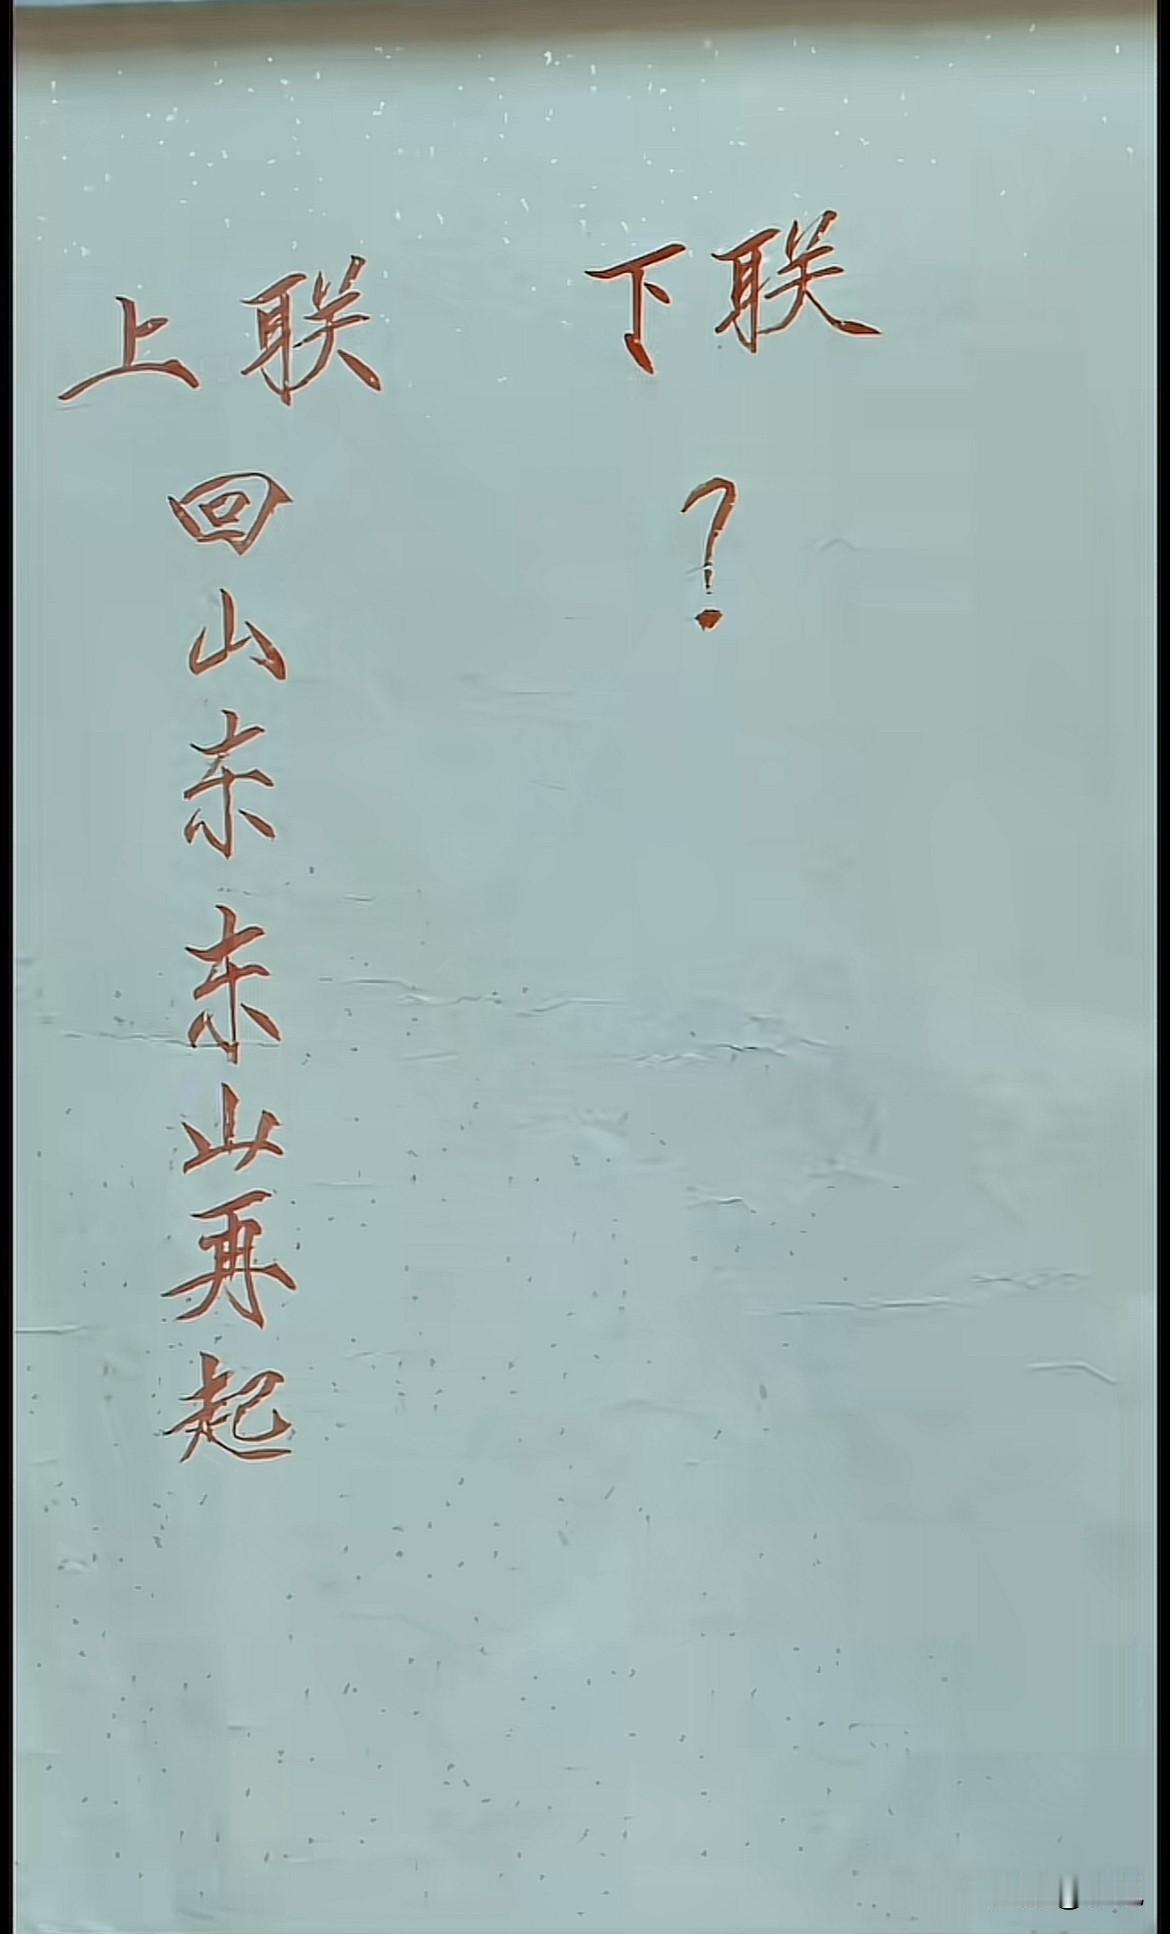 上联
回山东东山再起
下联
?